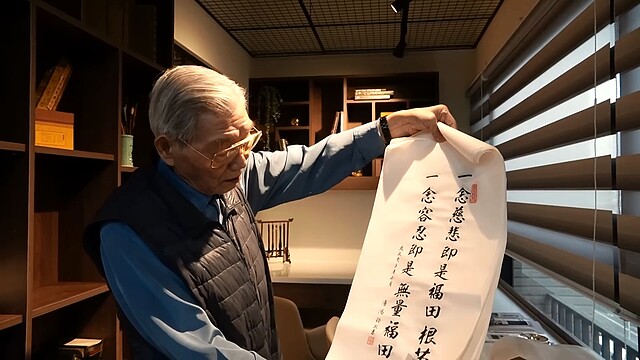 一念慈悲即是福田根
一念容忍即是無量福田